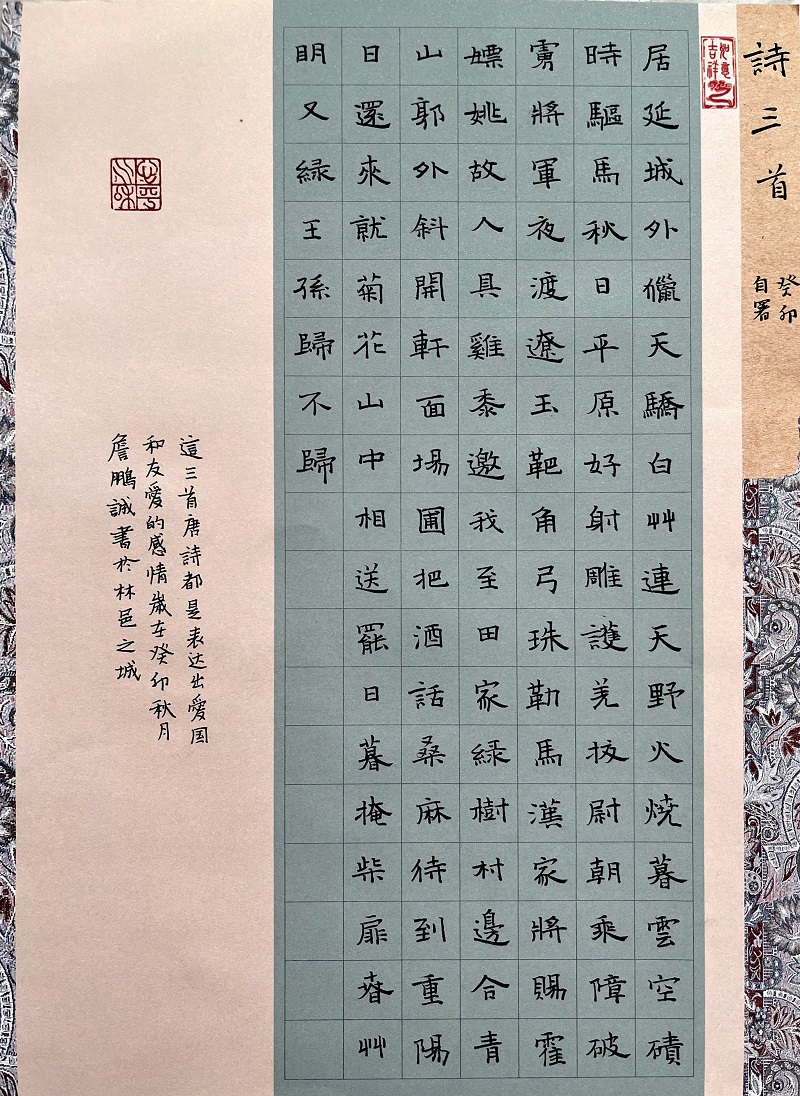 詩三首
癸卯
自署
如意
吉祥
居延城外獵天驕白艸連天野火燒暮雲空磧
時驅馬秋日平原好射雕護羌挍尉朝乘障破
虜將軍夜渡遼玉靶角弓珠勒馬漢家將賜霍
嫖姚故人具雞黍邀我至田家綠樹村邊合青
山郭外斜開軒面場圃把酒話桑麻待到重陽
日還來就菊花山中相送罷日暮掩柴扉春艸
明又綠王孫歸不歸
這三首唐詩都是表达出愛国
和友愛的感情歲在癸卯秋月
詹鵬誠書於林邑之城
心平
气和